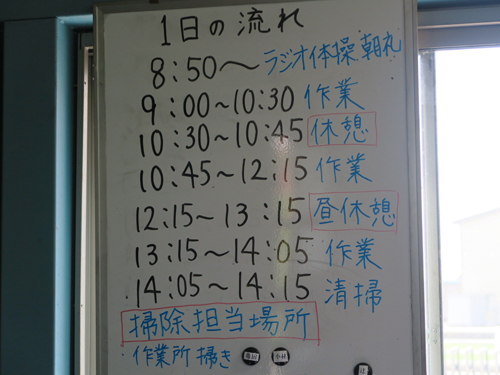 1日の流れ
8:50〜ラジオ体操朝礼
9:00〜10:30 作業
10:30〜10:45 休憩
10:45〜12:15 作業
12:15〜13:15 昼休憩
13:15〜14:05 作業
14:05〜14:15 清掃
掃除担当場所
作業所掃き